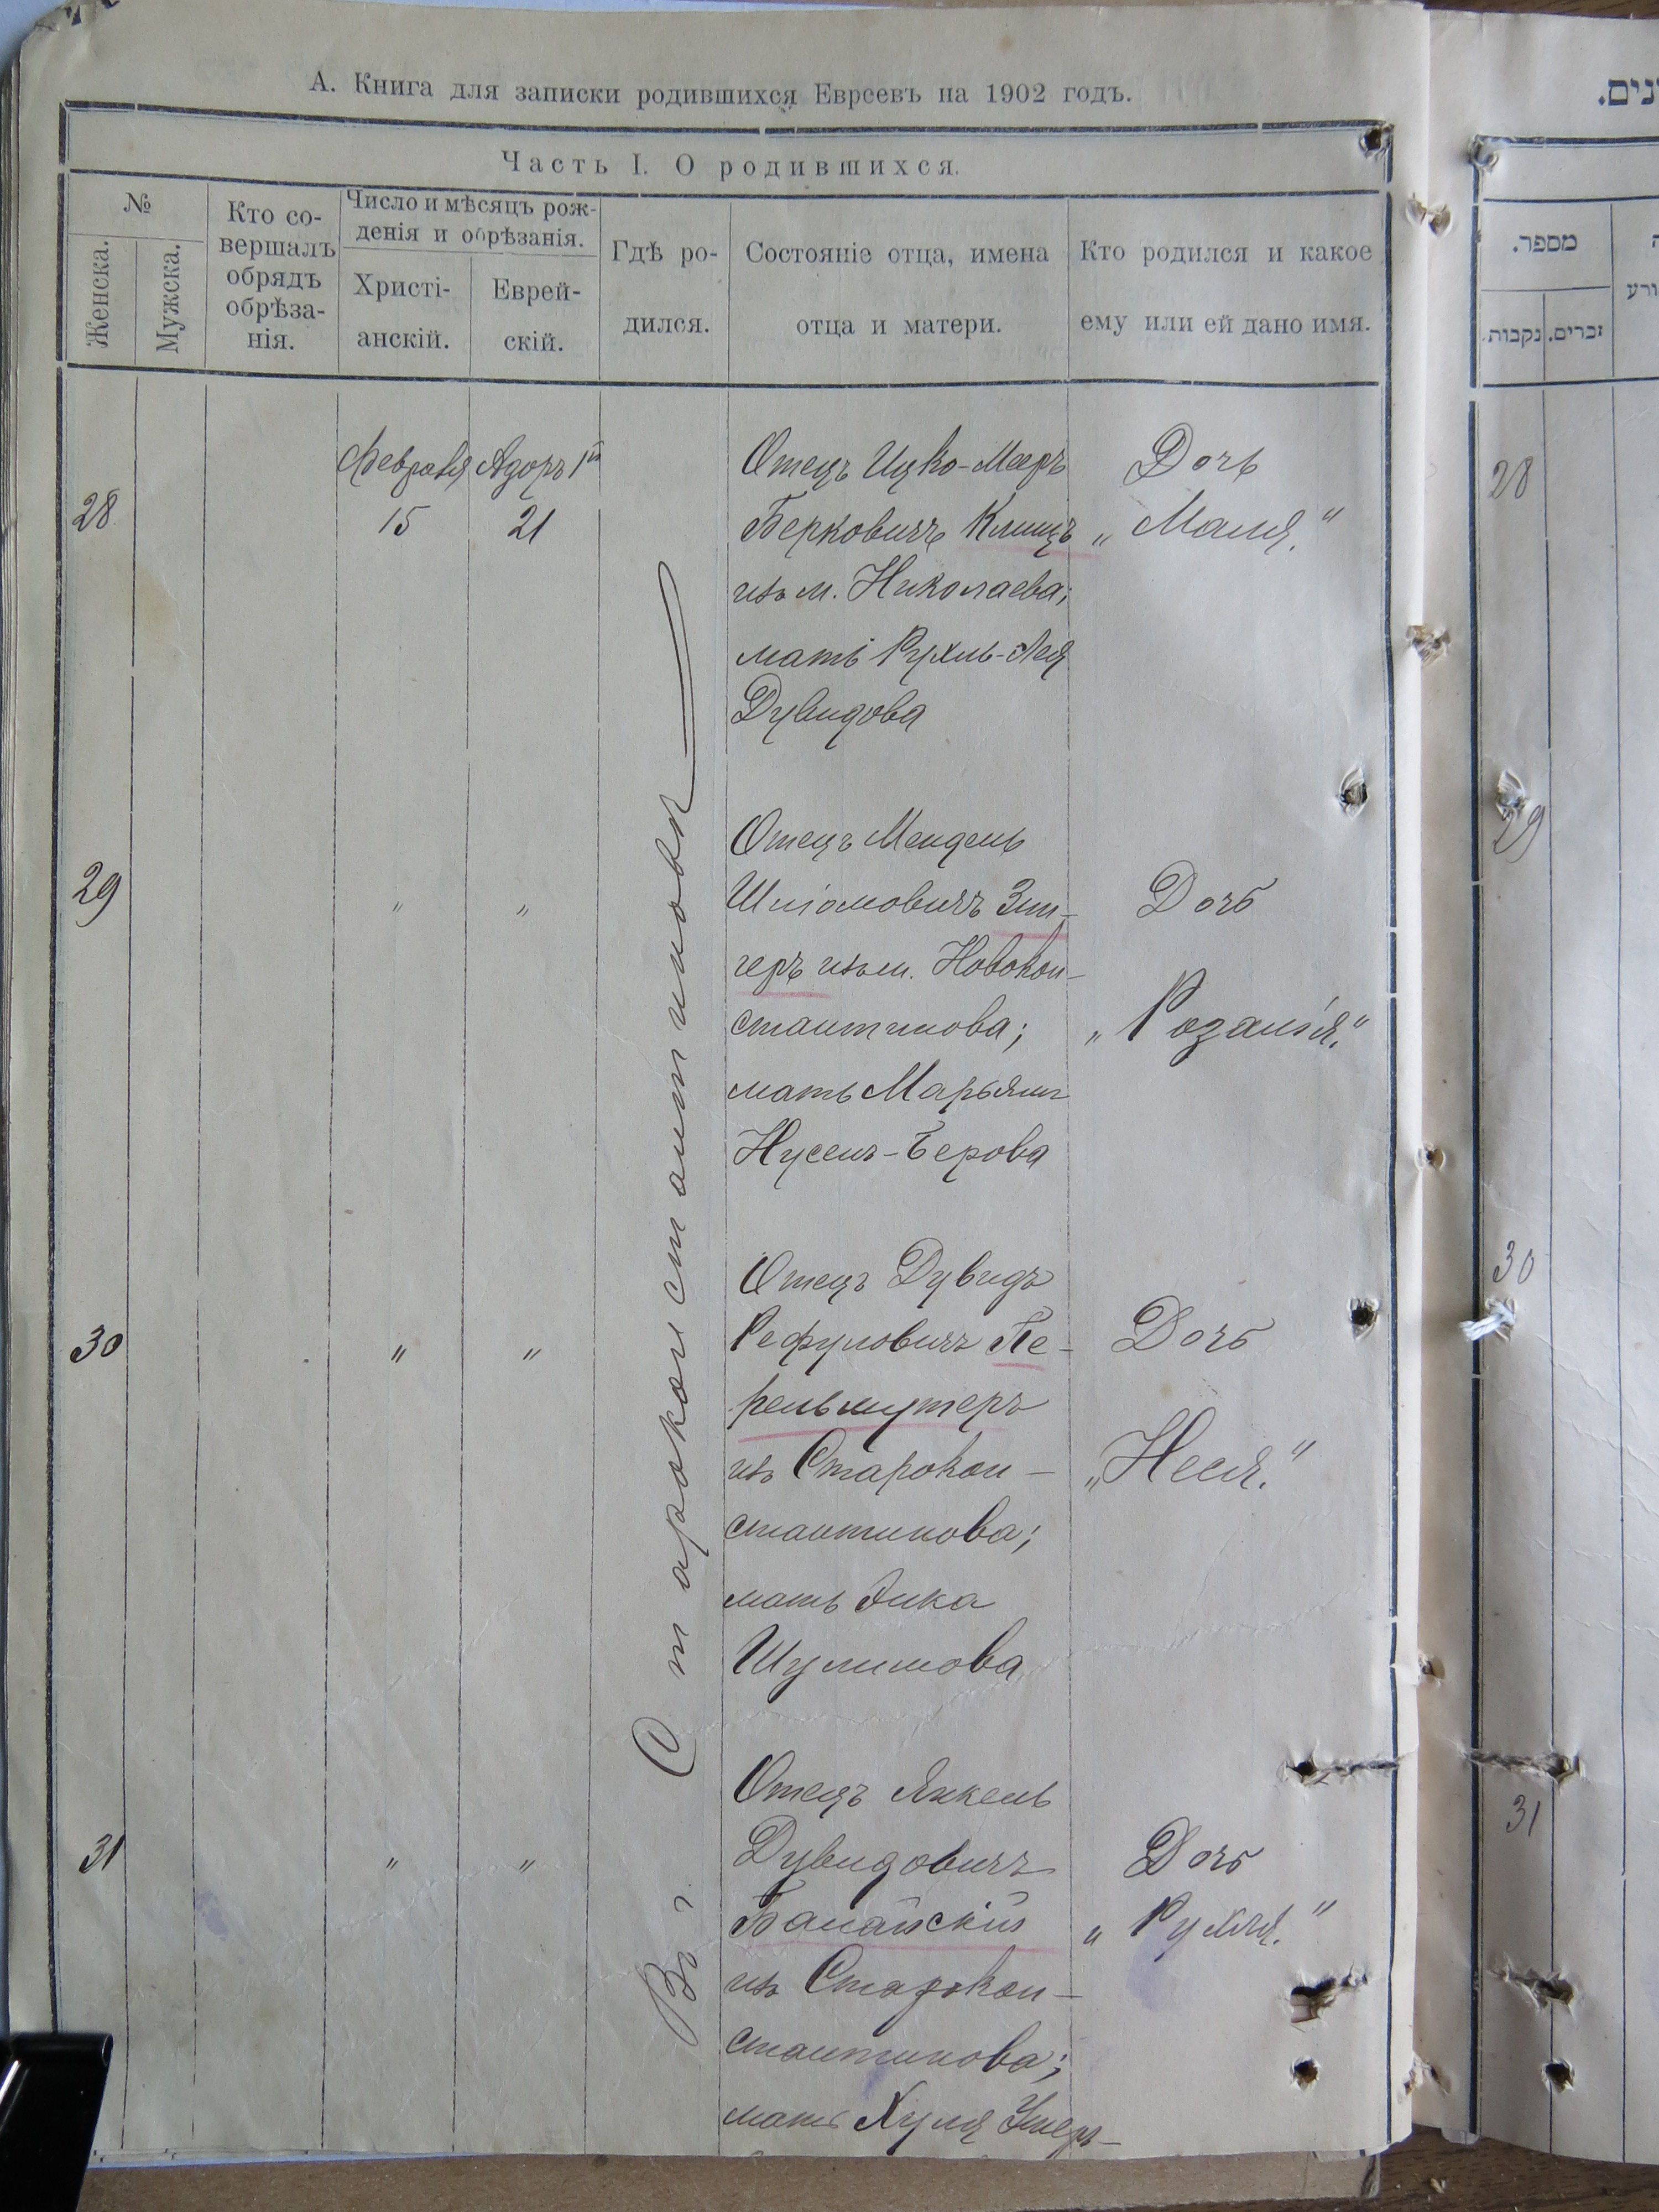 А. Книга для записки родившихся Евреевъ на 1902 годъ.
Часть I. О родившихся.
№
Женска.
Мужска.
Кто со-
вершалъ
обрядъ
обрѣза-
нія.
Число и мѣсяцъ рож-
денія и обрѣзанія.
Христі-
анскій.
Еврей-
скій.
Гдѣ ро-
дился.
Состояніе отца, имена
отца и матери.
Кто родился и какое
ему или ей дано имя.
Въ г. Староконстантиновѣ
28
Февраля
15
Адоръ 1й
21
Отецъ Ицко-Мееръ
Берковичъ Клищъ
изъ м. Николаева;
мать Рухль-Лея
Дувидова
Дочь
„Маля."
29
"
"
Отецъ Мендель
Шліомовичъ Зин-
геръ изъ м. Новокон-
стантинова;
мать Марьям
Нусенъ-Берова
Дочь
„Розалія."
30
"
"
Отецъ Дувидъ
Рефуловичъ Пе-
рельмутеръ
изъ Старокон-
стантинова;
мать Эйка
Шулимова
Дочь
„Неся."
31
"
"
Отецъ Янкель
Дувидовичъ
изъ Старокон-
стантинова;
мать Хуля
Дочь
„Рухля."
נים.
מספר.
נקבות.
זכרים.
ורע
28
29
30
31